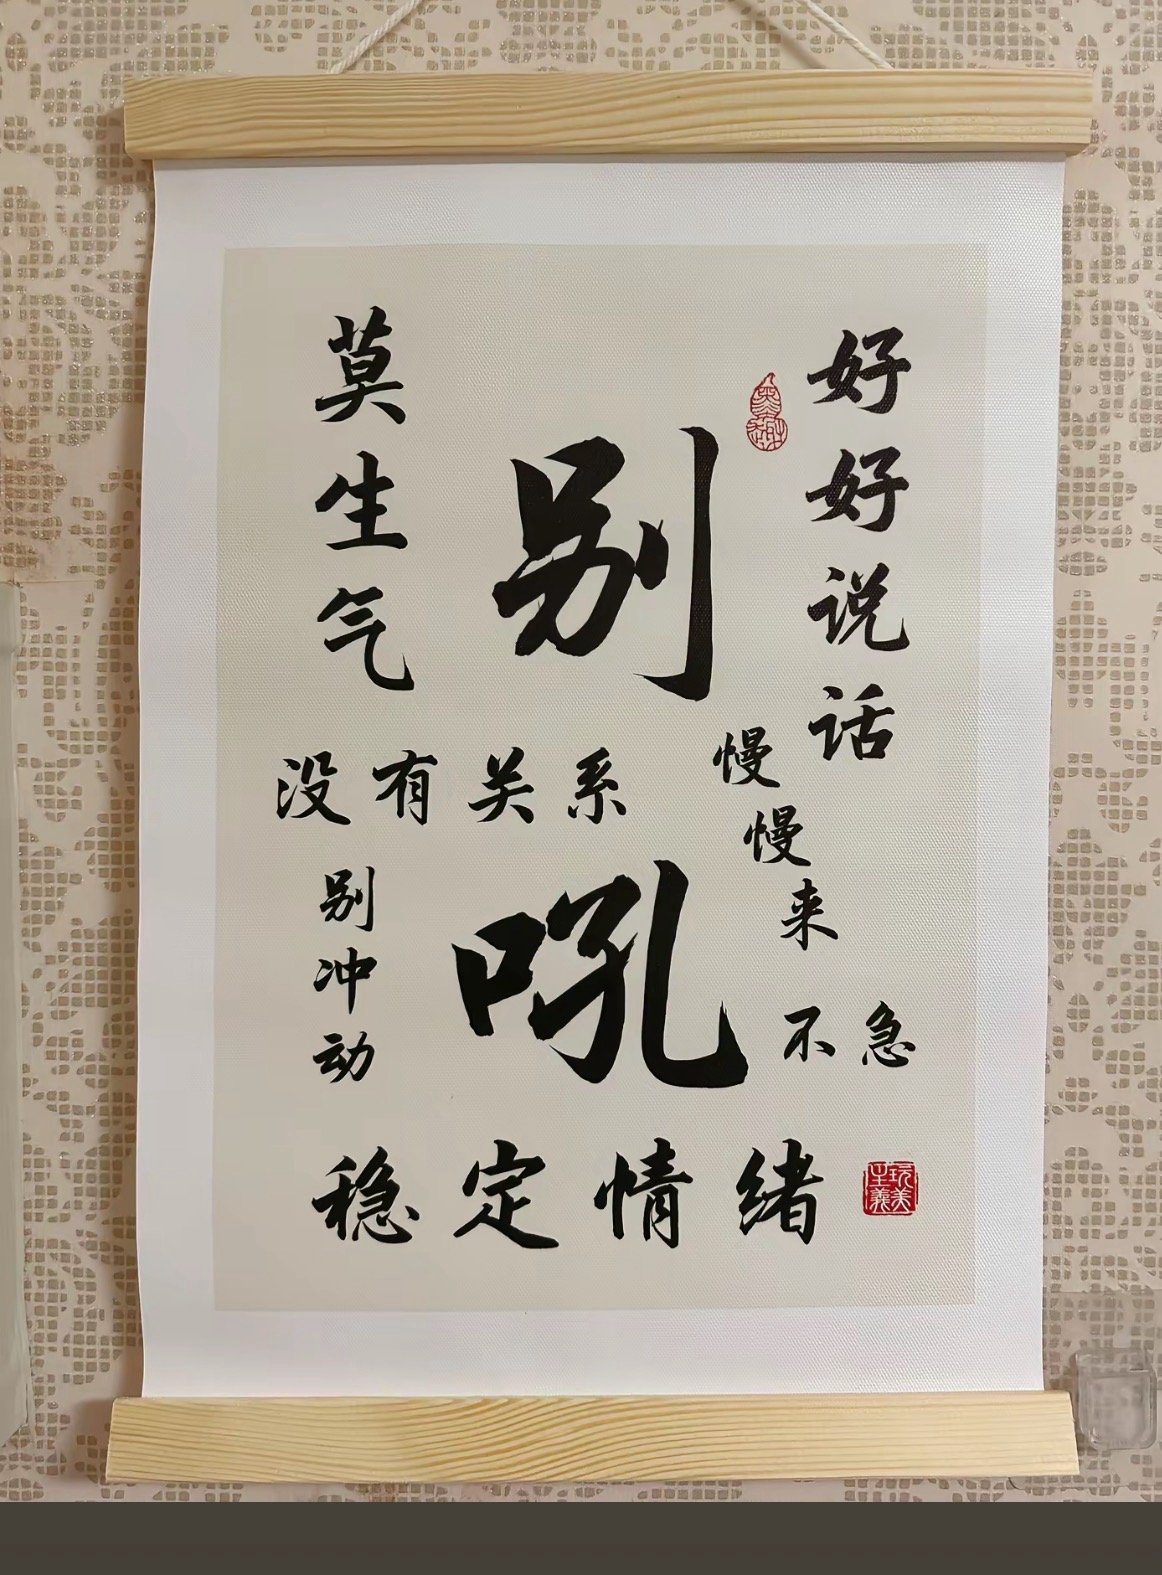 好好说话
别吼
莫生气
没有关系
慢慢来
不急
别冲动
稳定情绪